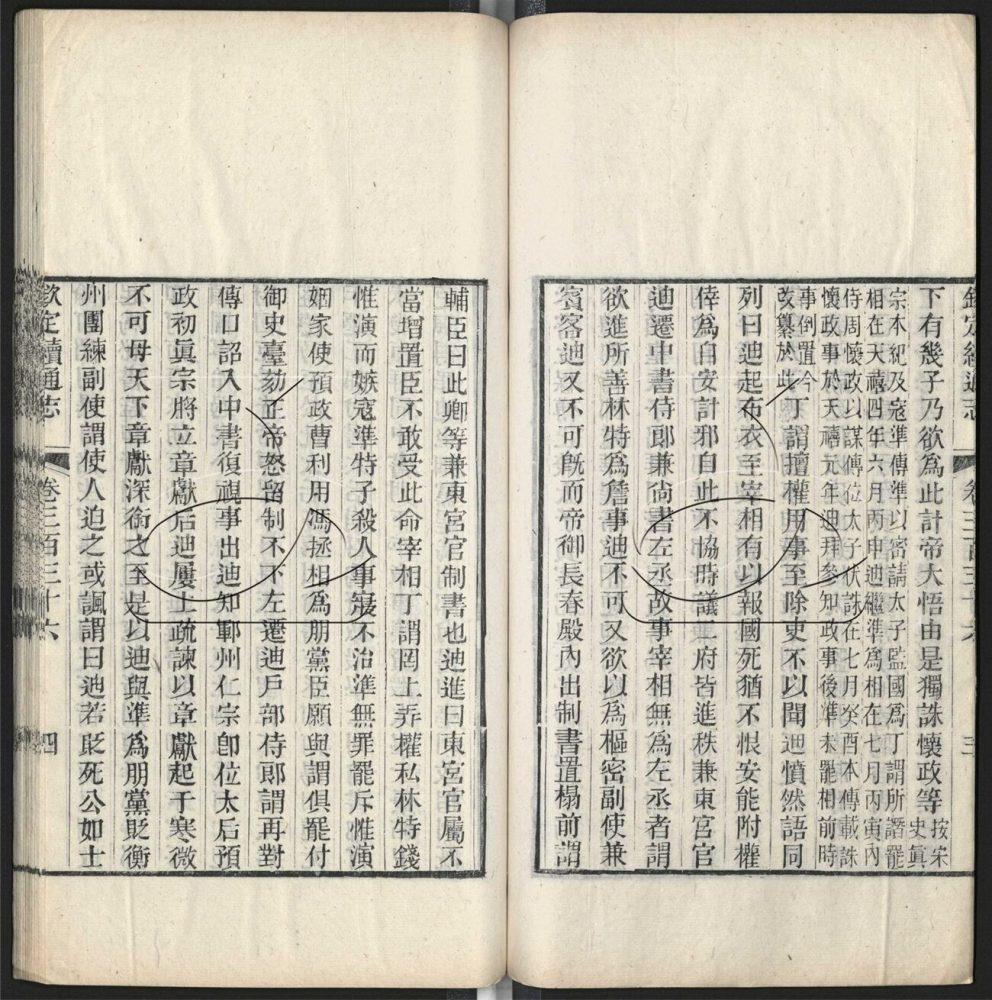 欽定續通志 卷三百三十六 三
下有幾子乃欲爲此計帝大悟由是獨誅懷政等按宋史眞
宗本紀及寇準傳準以密請太子監國爲丁謂所譖罷
相在天禧四年六月丙申迪繼準爲相在七月丙寅內
侍周懷政以謀傳位太子伏誅在七月癸酉本傳載誅
懷政事於天禧元年迪拜參知政事後準未罷相前時
事倒置今
改纂於此丁謂擅權用事至除吏不以聞迪憤然語同
列曰迪起布衣至宰相有以報國死猶不恨安能附權
倖爲自安計邪自此不協時議二府皆進秩兼東宮官
迪遷中書侍郎兼尚書左丞故事宰相無爲左丞者謂
欲進所善林特爲詹事迪不可又欲以爲樞密副使兼
賓客迪又不可旣而帝御長春殿內出制書置榻前謂
輔臣曰此卿等兼東宮官制書也迪進曰東宮官屬不
當增置臣不敢受此命宰相丁謂罔上弄權私林特錢
惟演而嫉寇準特子殺人事寢不治準無罪罷斥惟演
姻家使預政曹利用馮拯相爲朋黨臣願與謂俱罷付
御史臺劾正帝怒留制不下左遷迪戶部侍郎謂再對
傳口詔入中書復視事出迪知鄆州仁宗卽位太后預
政初眞宗將立章獻后迪屢上疏諫以章獻起于寒微
不可母天下章獻深銜之至是以迪與準爲朋黨貶衡
州團練副使謂使人迫之或諷謂曰迪若貶死公如士
欽定續通志 卷三百三十六 四